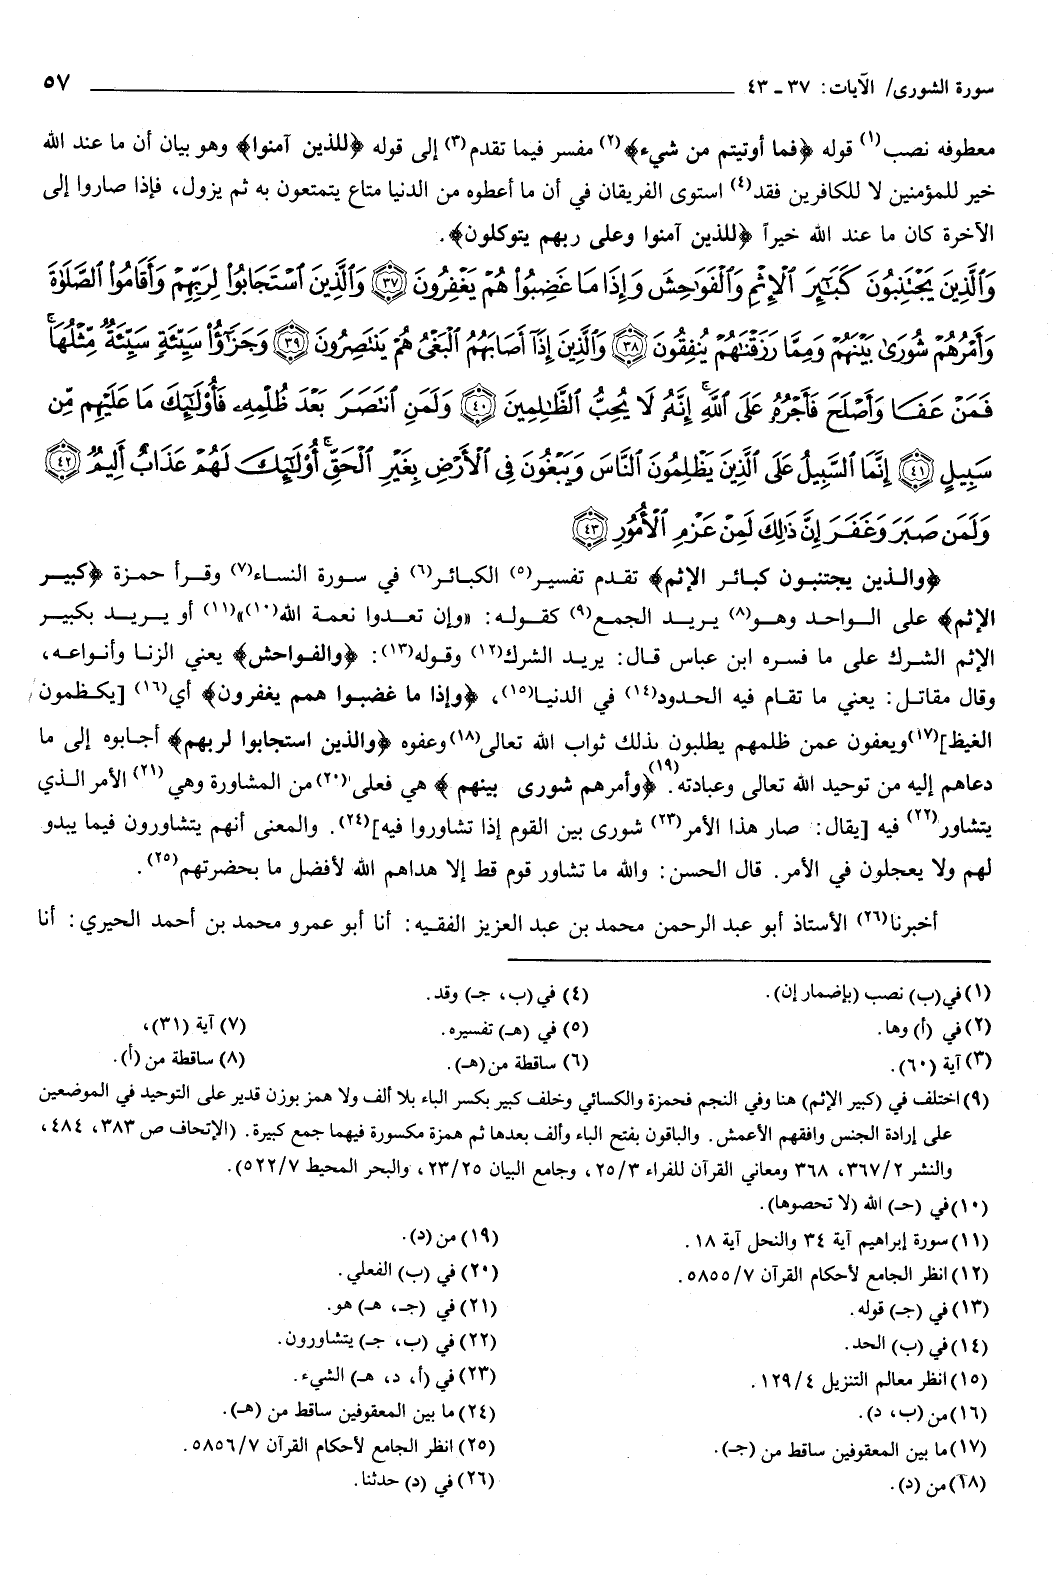 سورة الشورى/ الآيات: ٣٧ - ٤٣
٥٧
معطوفه نصب(١) قوله ﴿فما أوتيتم من شيء﴾(٢) مفسر فيما تقدم(٣) إلى قوله ﴿للذين آمنوا﴾ وهو بيان أن ما عند الله
خير للمؤمنين لا للكافرين فقد(٤) استوى الفريقان في أن ما أعطوه من الدنيا متاع يتمتعون به ثم يزول، فإذا صاروا إلى
الآخرة كان ما عند الله خيراً ﴿للذين آمنوا وعلى ربهم يتوكلون﴾.
وَالَّذِينَ يَجْتَنِبُونَ كَبَائِرَ الْإِثْمِ وَالْفَوَاحِشَ وَإِذَا مَا غَضِبُوا هُمْ يَغْفِرُونَ ٣٧ وَالَّذِينَ اسْتَجَابُوا لِرَبِّهِمْ وَأَقَامُوا الصَّلَاةَ
وَأَمْرُهُمْ شُورَى بَيْنَهُمْ وَمِمَّا رَزَقْنَاهُمْ يُنْفِقُونَ ٣٨ وَالَّذِينَ إِذَا أَصَابَهُمُ الْبَغْيُ هُمْ يَنْتَصِرُونَ ٣٩ وَجَزَاؤُا سَيِّئَةٍ سَيِّئَةٌ مِثْلُهَا
فَمَنْ عَفَا وَأَصْلَحَ فَأَجْرُهُ عَلَى اللَّهِ إِنَّهُ لَا يُحِبُّ الظَّالِمِينَ ٤٠ وَلَمَنِ انْتَصَرَ بَعْدَ ظُلْمِهِ فَأُولَئِكَ مَا عَلَيْهِم مِّن
سَبِيلٍ ٤١ إِنَّمَا السَّبِيلُ عَلَى الَّذِينَ يَظْلِمُونَ النَّاسَ وَيَبْغُونَ فِي الْأَرْضِ بِغَيْرِ الْحَقِّ أُولَئِكَ لَهُمْ عَذَابٌ أَلِيمٌ ٤٢
وَلَمَن صَبَرَ وَغَفَرَ إِنَّ ذَلِكَ لَمِنْ عَزْمِ الْأُمُورِ ٤٣
﴿والذين يجتنبون كبائر الإثم﴾ تقدم تفسير(٥) الكبائر(٦) في سورة النساء(٧) وقرأ حمزة ﴿كبير
الإثم﴾ على الواحد وهو(٨) يريد الجمع(٩) كقوله: «وإن تعدوا نعمة الله(١٠)»(١١) أو يريد بكبير
الإثم الشرك على ما فسره ابن عباس قال: يريد الشرك(١٢) وقوله(١٣): ﴿والفواحش﴾ يعني الزنا وأنواعه،
وقال مقاتل: يعني ما تقام فيه الحدود(١٤) في الدنيا(١٥)، ﴿وإذا ما غضبوا همم يغفرون﴾ أي(١٦) [يكظمون
الغيظ](١٧)ويعفون عمن ظلمهم يطلبون بذلك ثواب الله تعالى(١٨)وعفوه ﴿والذين استجابوا لربهم﴾ أجابوه إلى ما
دعاهم إليه من توحيد الله تعالى وعبادته.(١٩) ﴿وأمرهم شورى بينهم﴾ هي فعلى(٢٠)من المشاورة وهي(٢١) الأمر الذي
يتشاور(٢٢) فيه [يقال: صار هذا الأمر(٢٣) شورى بين القوم إذا تشاوروا فيه](٢٤). والمعنى أنهم يتشاورون فيما يبدو
لهم ولا يعجلون في الأمر. قال الحسن: والله ما تشاور قوم قط إلا هداهم الله لأفضل ما بحضرتهم(٢٥).
أخبرنا(٢٦) الأستاذ أبو عبد الرحمن محمد بن عبد العزيز الفقيه: أنا أبو عمرو محمد بن أحمد الحيري: أنا
(١) في(ب) نصب (بإضمار إن).
(٢) في (أ) وها.
(٣) آية (٦٠).
(٤) في(ب، جـ) وقد.
(٥) في (هـ) تفسيره.
(٦) ساقطة من(هـ).
(٧) آية (٣١)،
(٨) ساقطة من(أ).
(٩) اختلف في (كبير الإثم) هنا وفي النجم فحمزة والكسائي وخلف كبير بكسر الباء بلا ألف ولا همز بوزن قدير على التوحيد في الموضعين
على إرادة الجنس وافقهم الأعمش. والباقون بفتح الباء وألف بعدها ثم همزة مكسورة فيهما جمع كبيرة. (الإتحاف ص ٣٨٣، ٤٨٤،
والنشر ٣٦٧/٢، ٣٦٨ ومعاني القرآن للفراء ٢٥/٣، وجامع البيان ٢٣/٢٥، والبحر المحيط ٥٢٢/٧).
(١٠) في (حـ) الله (لا تحصوها).
(١١) سورة إبراهيم آية ٣٤ والنحل آية ١٨.
(١٢) انظر الجامع لأحكام القرآن ٥٨٥٥/٧.
(١٣) في (جـ) قوله.
(١٤) في (ب) الحد.
(١٥) انظر معالم التنزيل ١٢٩/٤.
(١٦) من (ب، د).
(١٧) ما بين المعقوفين ساقط من (جـ).
(١٨) من (د).
(١٩) من (د).
(٢٠) في (ب) الفعلي.
(٢١) في (جـ، هـ) هو.
(٢٢) في (ب، جـ) يتشاورون.
(٢٣) في (أ، د، هـ) الشيء.
(٢٤) ما بين المعقوفين ساقط من (هـ).
(٢٥) انظر الجامع لأحكام القرآن ٥٨٥٦/٧.
(٢٦) في (د) حدثنا.